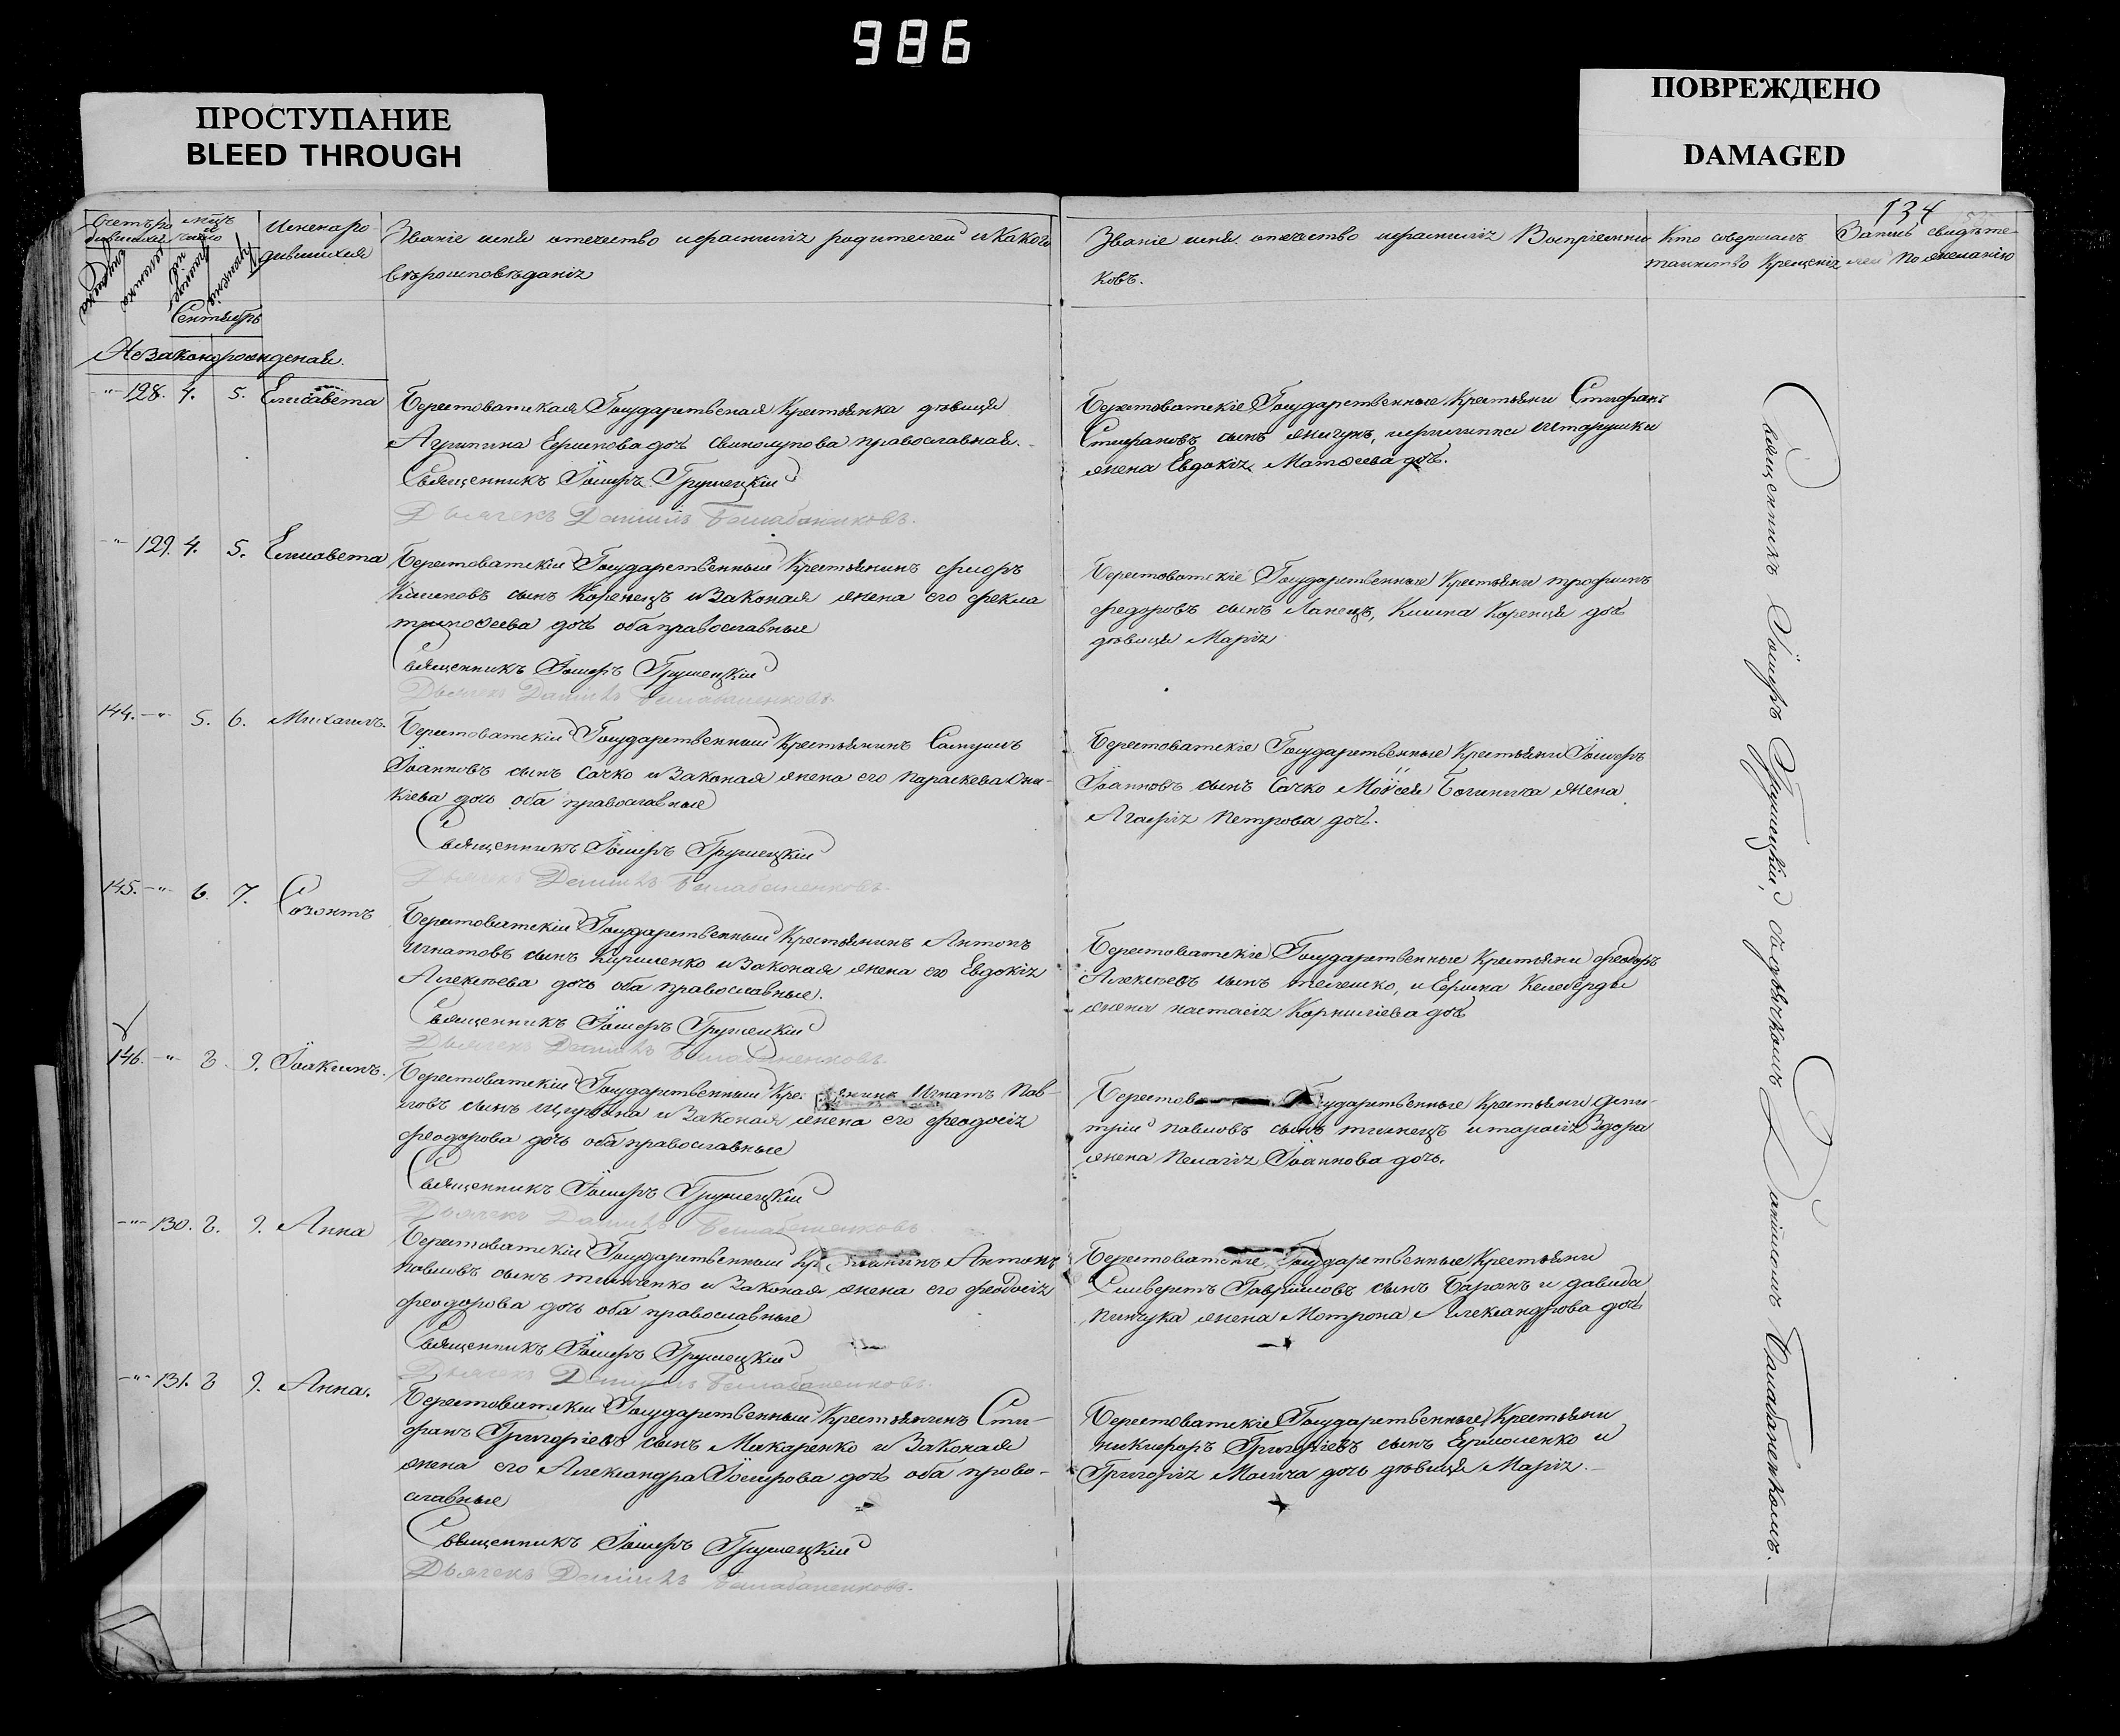 986
ПРОСТУПАНИЕ
BLEED THROUGH
ПОВРЕЖДЕНО
DAMAGED
134
Счетъ ро
дившихся
мѣц
и
число
Имена ро
дившихся
Званіе имя отечество и фамилія родителей и какого
вѣроисповѣданія
Званіе имя отечество и фамилія Воспріемни
ковъ.
Кто совершалъ
таинство Крещенія
Запись свидѣте
лей по желанію
Сентябрь
Незаконорожденая.
-"- 128. 4. 5. Елисавета
Берестоватская Государственая Крестьянка дѣвица
Агрипина Ермилова дочь православная.
Священникъ Іосифъ Грушецкій
Дьячекъ Даніилъ Балабаненковъ.
Берестоватскіе Государственные Крестьяни Стефанъ
Стефановъ сынъ
жена Евдокія Матѳеева дочь.
-"- 129. 4. 5. Елисавета
Берестоватскій Государственный Крестьянинъ Флоръ
Климовъ сынъ Коренецъ и Законая жена его Фекла
Тимоѳеева дочь оба православные
Священникъ Іосифъ Грушецкій
Дьячекъ Даніилъ Балабаненковъ.
Берестоватскіе Государственные Крестьяни Трофимъ
Федоровъ сынъ Ланецъ, Клима Коренця дочь
дѣвица Марія
144. -"- 5. 6. Михаилъ.
Берестоватскій Государственный Крестьянинъ Самуилъ
Іоанновъ сынъ Сочко и Законая жена его Параскева Они-
кіева дочь оба православные
Священникъ Іосифъ Грушецкій
Дьячекъ Даніилъ Балабаненковъ.
Берестоватскіе Государственные Крестьяни Іосифъ
Іоанновъ сынъ Сочко Моисея жена
Агафія Петрова дочь.
145. -"- 6. 7. Созонтъ
Берестоватскій Государственный Крестьянинъ Антонъ
Игнатовъ сынъ Кириленко и Законая жена его Евдокія
Алексѣева дочь оба православные.
Священникъ Іосифъ Грушецкій
Дьячекъ Даніилъ Балабаненковъ.
Берестоватскіе Государственные Крестьяни Феодоръ
Алексѣевъ сынъ Телешко, и Ермила Келеберды
жена Настасія Корниліева дочь
146. -"- 8. 9. Іоакимъ.
Берестоватскій Государственный Кре янинъ Игнатъ Пав-
ловъ сынъ и Законая жена его Феодосія
Феодорова дочь оба православные
Священникъ Іосифъ Грушецкій
Дьячекъ Даніилъ Балабаненковъ
Берестов Государственные Крестьяни Дми-
трій Павловъ сынъ и Тарасія Здора
жена Пелагія Іоаннова дочь.
-"- 130. 8. 9. Анна
Берестоватскій Государственный Кр янинъ Антонъ
Павловъ сынъ и Законая жена его Феодосія
Феодорова дочь оба православные
Священникъ Іосифъ Грушецкій
Дьячекъ Даніилъ Балабаненковъ.
Берестоватскіе Государственные Крестьяни
Селиверстъ Гавріиловъ сынъ Баранъ и Давида
Пинчука жена Мотрона Александрова дочь
-"- 131. 8 9. Анна.
Берестоватскій Государственный Крестьянинъ Сте-
фанъ Григоріевъ сынъ Макаренко и Законая
жена его Александра Іосифова дочь оба право-
славные
Священникъ Іосифъ Грушецкій
Дьячекъ Даніилъ Балабаненковъ.
Берестоватскіе Государственные Крестьяни
Никифоръ Григоріевъ сынъ Ермоленко и
Григорія дочь дѣвица Марія.
Священникъ Іосифъ Грушецкій, съ дьячкомъ Даніиломъ Балабаненкомъ.